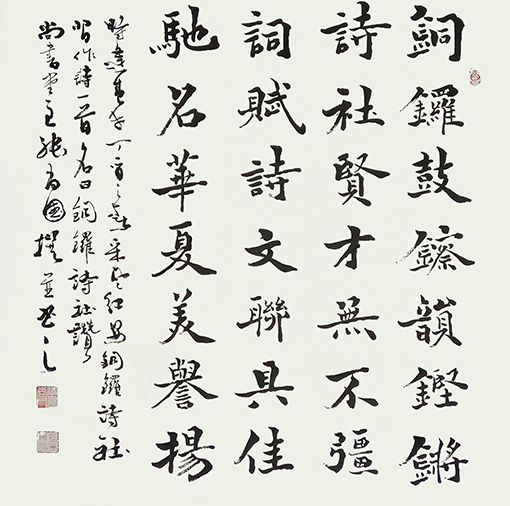 銅鑼鼓鑔韻鏗鏘
詩社賢才無不彊
詞賦詩文聯具佳
馳名華夏美譽揚
丁酉之秋采風紅安銅鑼詩社
習作詩一首名曰銅鑼詩社讚
尚書堂主張為國撰並書之